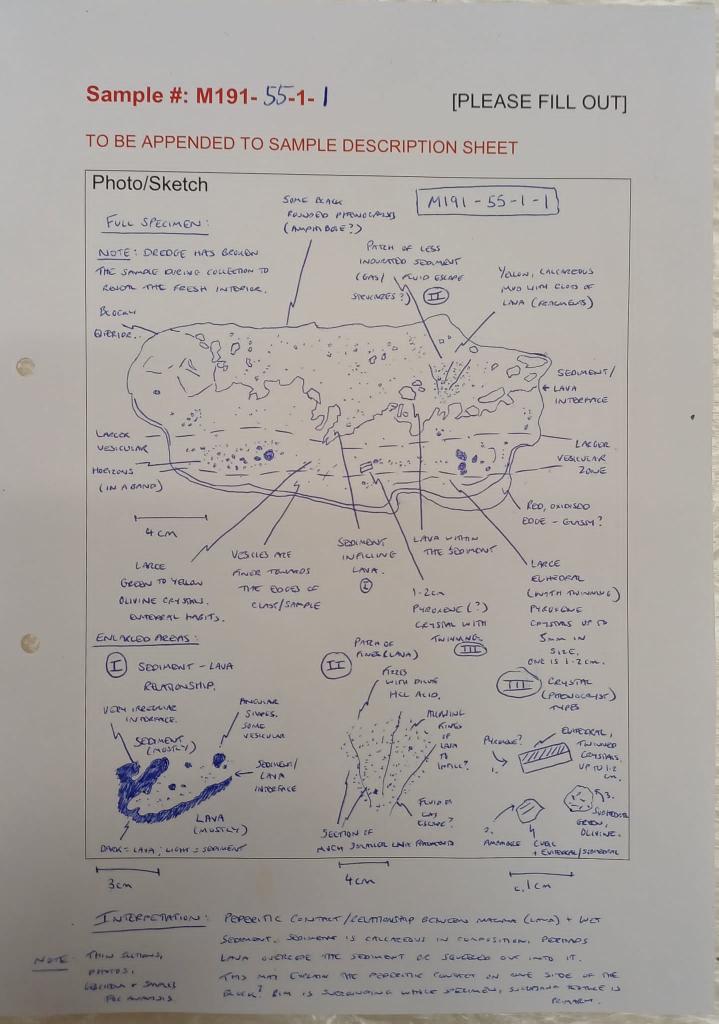 Sample #: M191-55-1-1
[PLEASE FILL OUT]
TO BE APPENDED TO SAMPLE DESCRIPTION SHEET
Photo/Sketch
M191-55-1-1
FULL SPECIMEN:
NOTE: DREDGE HAS BROKEN
THE SAMPLE DURING COLLECTION TO
REVEAL THE FRESH INTERIOR.
SOME BLACK
ROUNDED PHENOCRYSTS
(AMPHIBOLE?)
PATCH OF LESS
INDURATED SEDIMENT
(GAS/FLUID ESCAPE
STRUCTURES?)
II
YELLOW, CALCAREOUS
MUD WITH CLOTS OF
LAVA (FRAGMENTS)
BLOCKY
EXTERIOR.
SEDIMENT/
LAVA
INTERFACE
LARGER
VESICULAR
HORIZONS
(IN A BAND)
LARGER
VESICULAR
ZONE
RED, OXIDISED
EDGE - GLASSY?
4cm
LARGE
GREEN TO YELLOW
OLIVINE CRYSTALS.
EUHEDRAL HABITS.
VESICLES ARE
FINER TOWARDS
THE EDGES OF
CLAST/SAMPLE
SEDIMENT
INFILLING
LAVA.
I
LAVA WITHIN
THE SEDIMENT
1-2cm
PYROXENE (?)
CRYSTAL WITH
TWINNING
III
LARGE
EUHEDRAL
(WITH TWINNING)
PYROXENE
CRYSTALS UP TO
5mm IN
SIZE.
ONE IS 1-2cm.
ENLARGED AREAS:
I
SEDIMENT-LAVA
RELATIONSHIP.
VERY IRREGULAR
INTERFACE.
ANGULAR
SHAPES.
SOME
VESICULAR
SEDIMENT
(MOSTLY)
SEDIMENT/
LAVA
INTERFACE
LAVA
(MOSTLY)
DARK = LAVA; LIGHT = SEDIMENT
3cm
II
PATCH OF
FINES (LAVA)
FIZZES
WITH DILUTE
HCL ACID.
OF
LAVA
TO
FLUID OR
GAS
ESCAPE?
SECTION OF
MUCH SMALLER LAVA FRAGMENTS
4cm
III
CRYSTAL
(PHENOCRYST)
TYPES
PYROXENE?
1.
EUHEDRAL,
TWINNED
CRYSTALS,
UP TO 1-2
cm.
3.
SUBHEDRAL
GREEN,
OLIVINE.
2.
AMPHIBOLE
+ EUHEDRAL/SUBHEDRAL
c. 1cm
INTERPRETATION: PEPERITIC CONTACT/RELATIONSHIP BETWEEN MAGMA (LAVA) + WET
SEDIMENT. SEDIMENT IS CALCAREOUS IN COMPOSITION. PERHAPS
LAVA OVERRODE THE SEDIMENT OR SQUEEZED OUT INTO IT.
THIS MAY EXPLAIN THE PEPERITIC CONTACT ON ONE SIDE OF THE
BLOCK? RIM IS SURROUNDING WHOLE SPECIMEN, SUGGESTING TEXTURE IS
PRIMARY.
NOTE: THIN SECTIONS,
PHOTOS,
+ SAMPLES
FOR ANALYSIS